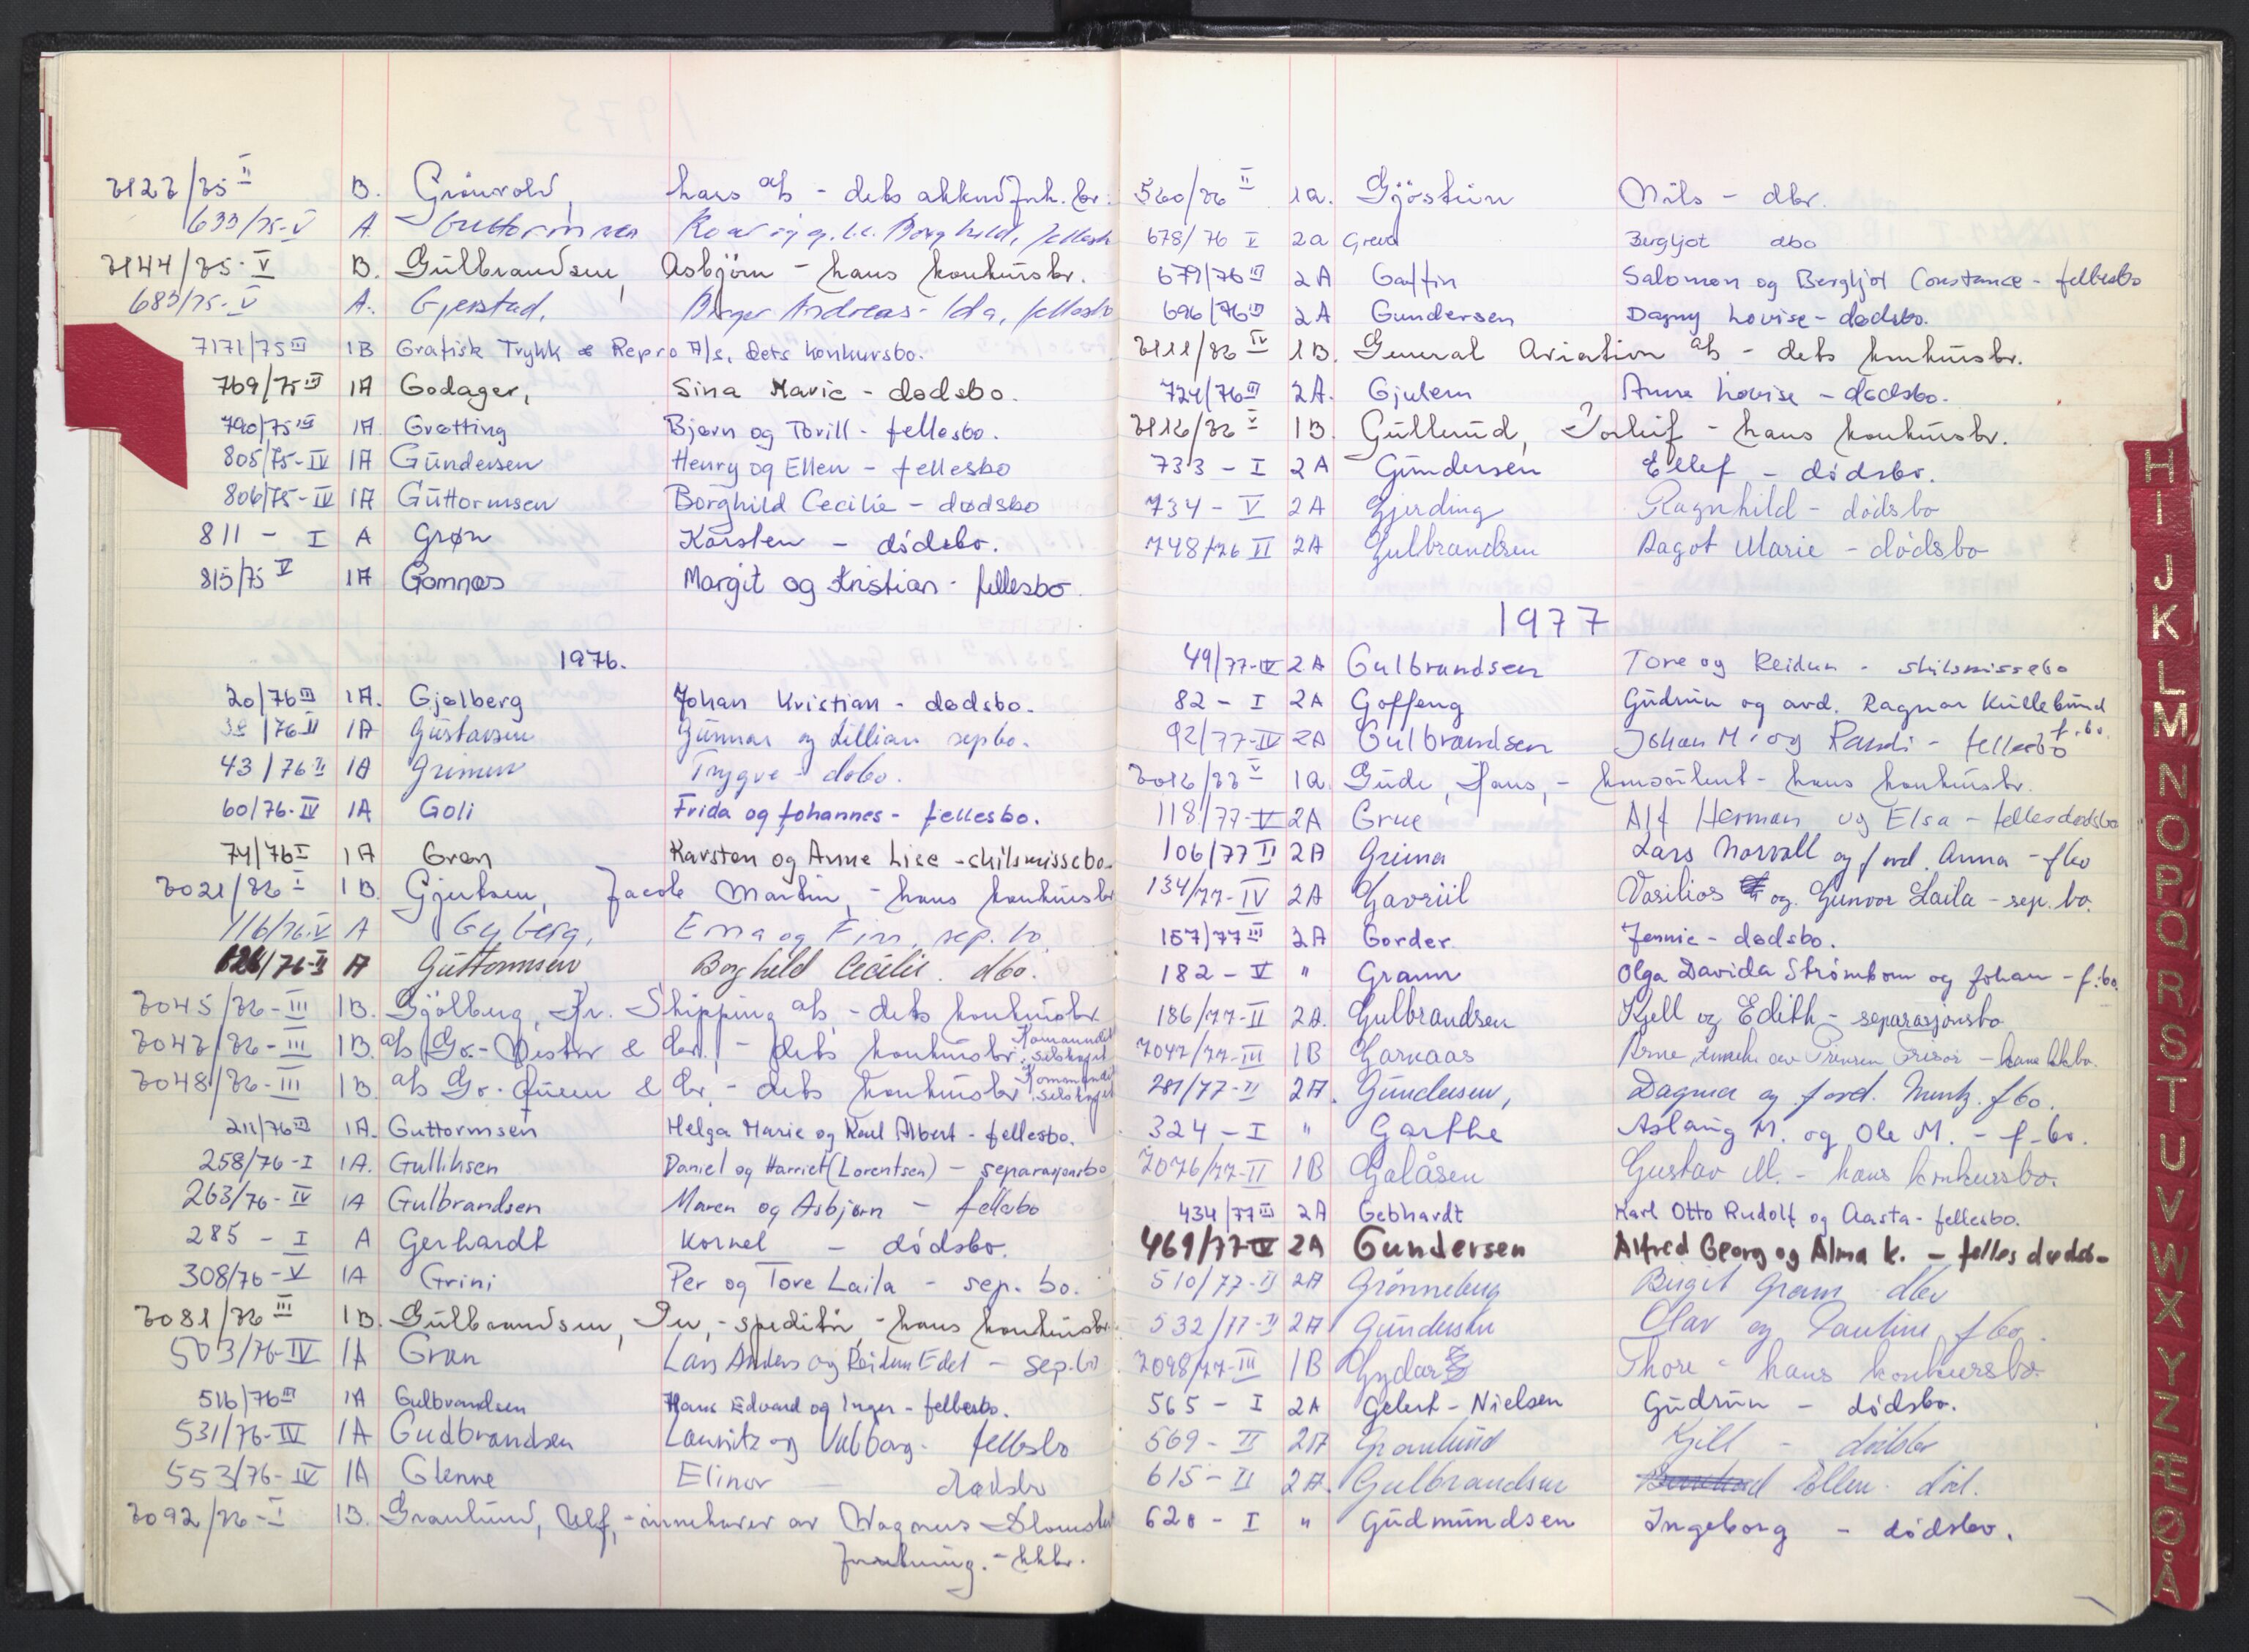 7127/75 II B. Grönvold, Lars a/s - dets
633/75-V A. Guttormsen Roar og Borghild, fellesb
7144/75-V B. Gulbrandsen, Asbjörn - hans konkursbo.
683/75-V A. Gjerstad, Birger Andreas - Ida, fellesbo
7171/75 III 1B Grafisk Trykk & Repro A/s, dets konkursbo.
769/75 III 1A Godager, Sina Marie - dødsbo.
790/75 III 1A Grøtting Bjørn og Torill - fellesbo.
805/75-IV 1A Gundersen Henry og Ellen - fellesbo
806/75-IV 1A Guttormsen Borghild Cecilie - dødsbo
811 - I A Grøn Karsten - dödsbo.
815/75 V 1A Gomnæs Margit og Kristian - fellesbo.
1976.
20/76 III 1A. Gjølberg Johan Kristian - dødsbo.
/76 II 1A Gustavsen Gunnar og Lillian sepbo.
43/76 II 1A Grimen Trygve - dsbo.
60/76-IV 1A Goli Frida og Johannes - fellesbo.
74/76 I 1A Grøn Karsten og Anne Lise - skilsmissebo.
7021/76 I 1B. Gjertsen, Jacob Martin, - hans konkursbo
116/76-V A Gyberg, Erna og Finn, sep. bo.
/76-II A Guttormsen Borghild Cecilie. dbo.
7045/76-III 1B. Gjölberg, Fr. Shipping a/s, - dets konkursbo
7047/76-III 1B. a/s Go.- Vester & Co. - dets konkursbo. Komanditt selskapet
7048/76-III 1B. a/s Go.- Queen & Co. - dets konkursbo Kommanditt selskapet
211/76 III 1A. Guttormsen Helga Marie og Karl Albert - fellesbo.
258/76-I 1A. Gulliksen Daniel og Harriet (Lorentsen) - separasjonsbo
263/76-IV 1A Gulbrandsen Maren og Asbjørn - fellesbo
285 - I A Gerhardt Kornel - dödsbo.
308/76-V 1A Grini Per og Tove Laila - sep. bo.
7081/76 III 1B. Gulbrandsen, Per, - speditör, - hans konkursbo.
503/76-IV 1A Gran Lars Anders og Reidun Edel - sep.bo
516/76 III 1A Gulbrandsen Hans Edvard og Inger - fellesbo.
531/76-IV 1A Gudbrandsen Lauritz og Valborg - fellesbo
553/76-IV 1A Glenne Elinor - dødsbo
7092/76-I 1B. Granlund, Ulf, - innehaver av Wagners Blomster
forretning. - kkbo.
560/76 II 1a. Gjöstein Nils - dbo.
678/76 V 2a Greve Bergljot dbo
679/76 III 2A Gaffin Salomon og Bergljot Constance - fellesbo
696/76 III 2A Gundersen Dagny Lovise - dødsbo.
7111/76 IV 1B. General Aviation a/s - dets konkursbo.
724/76 III 2A. Gjulem Anna Lovise - dødsbo.
7116/76 V 1B. Gullerud, Torleif - hans konkursbo.
733 - I 2A Gundersen Ellef - dödsbo.
734 - V 2A Gjerding Ragnhild - dödsbo
748/76 II 2A Gulbrandsen Dagot Marie - dödsbo
1977
49/77-IV 2A Gulbrandsen Tore og Reidun - skilsmissebo
82 - I 2A Goffeng Gudrun og avd. Ragnar Kullebund f.bo.
92/77-IV 2A Gulbrandsen Johan M. og Randi - fellesbo
7016/77 V 1a. Gude, Hans, - konsulent - hans konkursbo.
118/77-V 2A Grue Alf Herman og Elsa - fellesdødsbo
106/77 II 2A Grima Lars Norvall og ford. Anna - fbo
134/77-IV 2A Gavriil Vasilios og. Gunvor Laila - sep. bo.
157/77 III 2A Gorder Jennie - dødsbo.
182 - V " Gramm Olga Davida Strömbom og Johan - f.bo.
186/77-II 2A. Gulbrandsen Kjell og Edith - separasjonsbo
7047/77-III 1B Garnaas Arne - hans kkbo.
281/77-II 2A. Gundersen, Dagmar og ford. fbo.
324 - I " Garthe Aslaug M. og Ole M. - f.bo.
7076/77-II 1B Galåsen Gustav M. - hans konkursbo.
434/77 III 2A Gebhardt Karl Otto Rudolf og Aasta - fellesbo.
469/77-IV 2A Gundersen Alfred Georg og Alma K. - felles dødsb-
510/77-II 2A Grönneberg Birgit Gram dbo
532/77-II 2A Gundersen Olav og Pauline fbo.
7098/77-III 1B Gydar Thore - hans konkursbo.
565 - I 2A Gelert - Nielsen Gudrun - dödsbo.
569 - II 2A Granlund Kjell - dödsbo
615 - II 2A. Gulbrandsen Ellen - död.
620 - I " Gudmundsen Ingeborg - dödsbo.
H
I
J
K
L
M
N
O
P
Q
R
S
T
U
V
W
X
Y
Z
Æ
Ø
Å